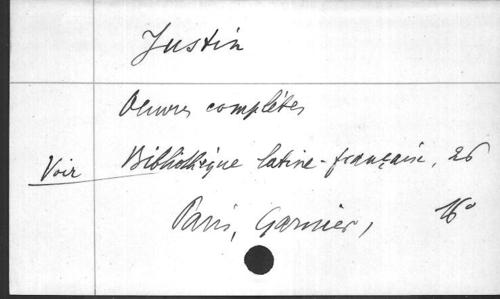 Justin
Oeuvres complètes
Voir Bibliothèque latine-française, 26
Paris, Garnier, 16°